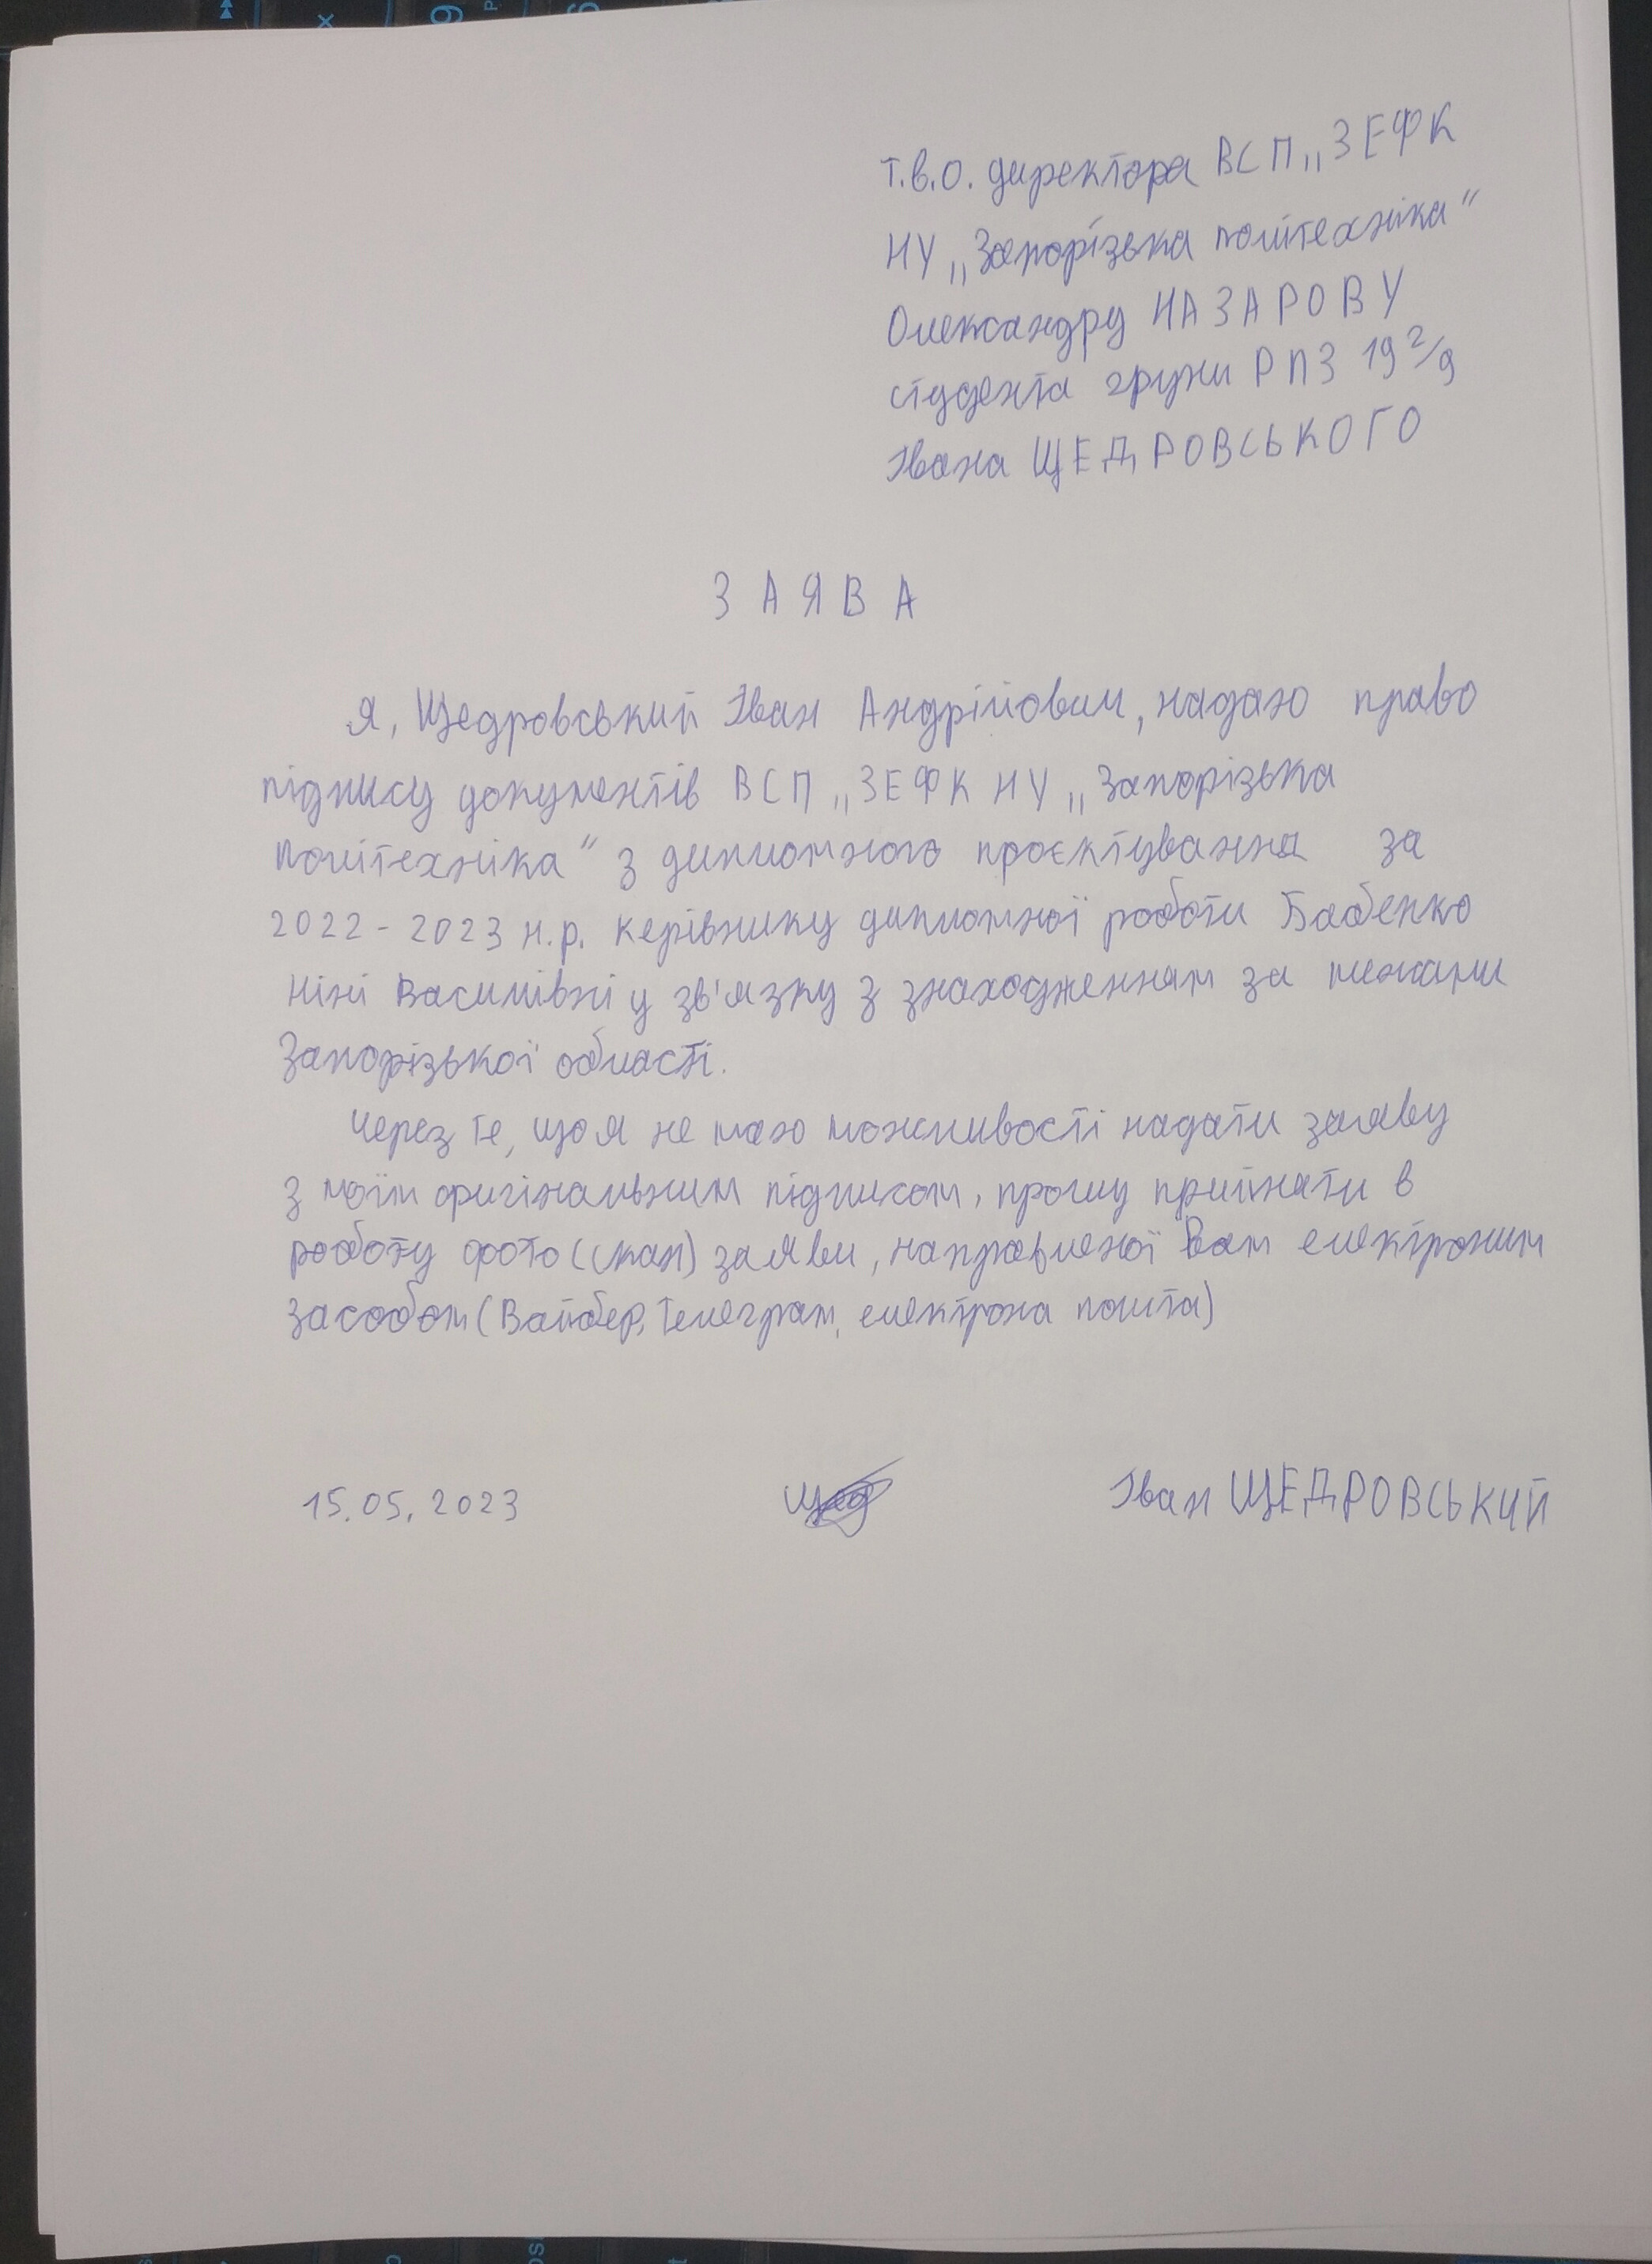 Т.в.о. директора ВСП „ЗЕФК
НУ „Запорізька політехніка"
Олександру НАЗАРОВУ
студента групи РПЗ 19 2/9
Івана ЩЕДРОВСЬКОГО
ЗАЯВА
Я, Щедровський Іван Андрійович, надаю право
підпису документів ВСП „ЗЕФК НУ „Запорізька
політехніка" з дипломного проєктування за
2022-2023 н.р. керівнику дипломної роботи Бабенко
Ніні Василівні у зв'язку з знаходженням за межами
Запорізької області.
Через те, що я не маю можливості надати заяву
з моїм оригінальним підписом, прошу прийняти в
роботу фото (скан) заяви, направленої Вам електроним
засобом (Вайбер, Телеграм, електрона пошта)
15.05.2023 Іван ЩЕДРОВСЬКИЙ